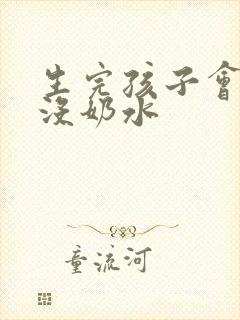 生完孩子會
沒奶水
童流河